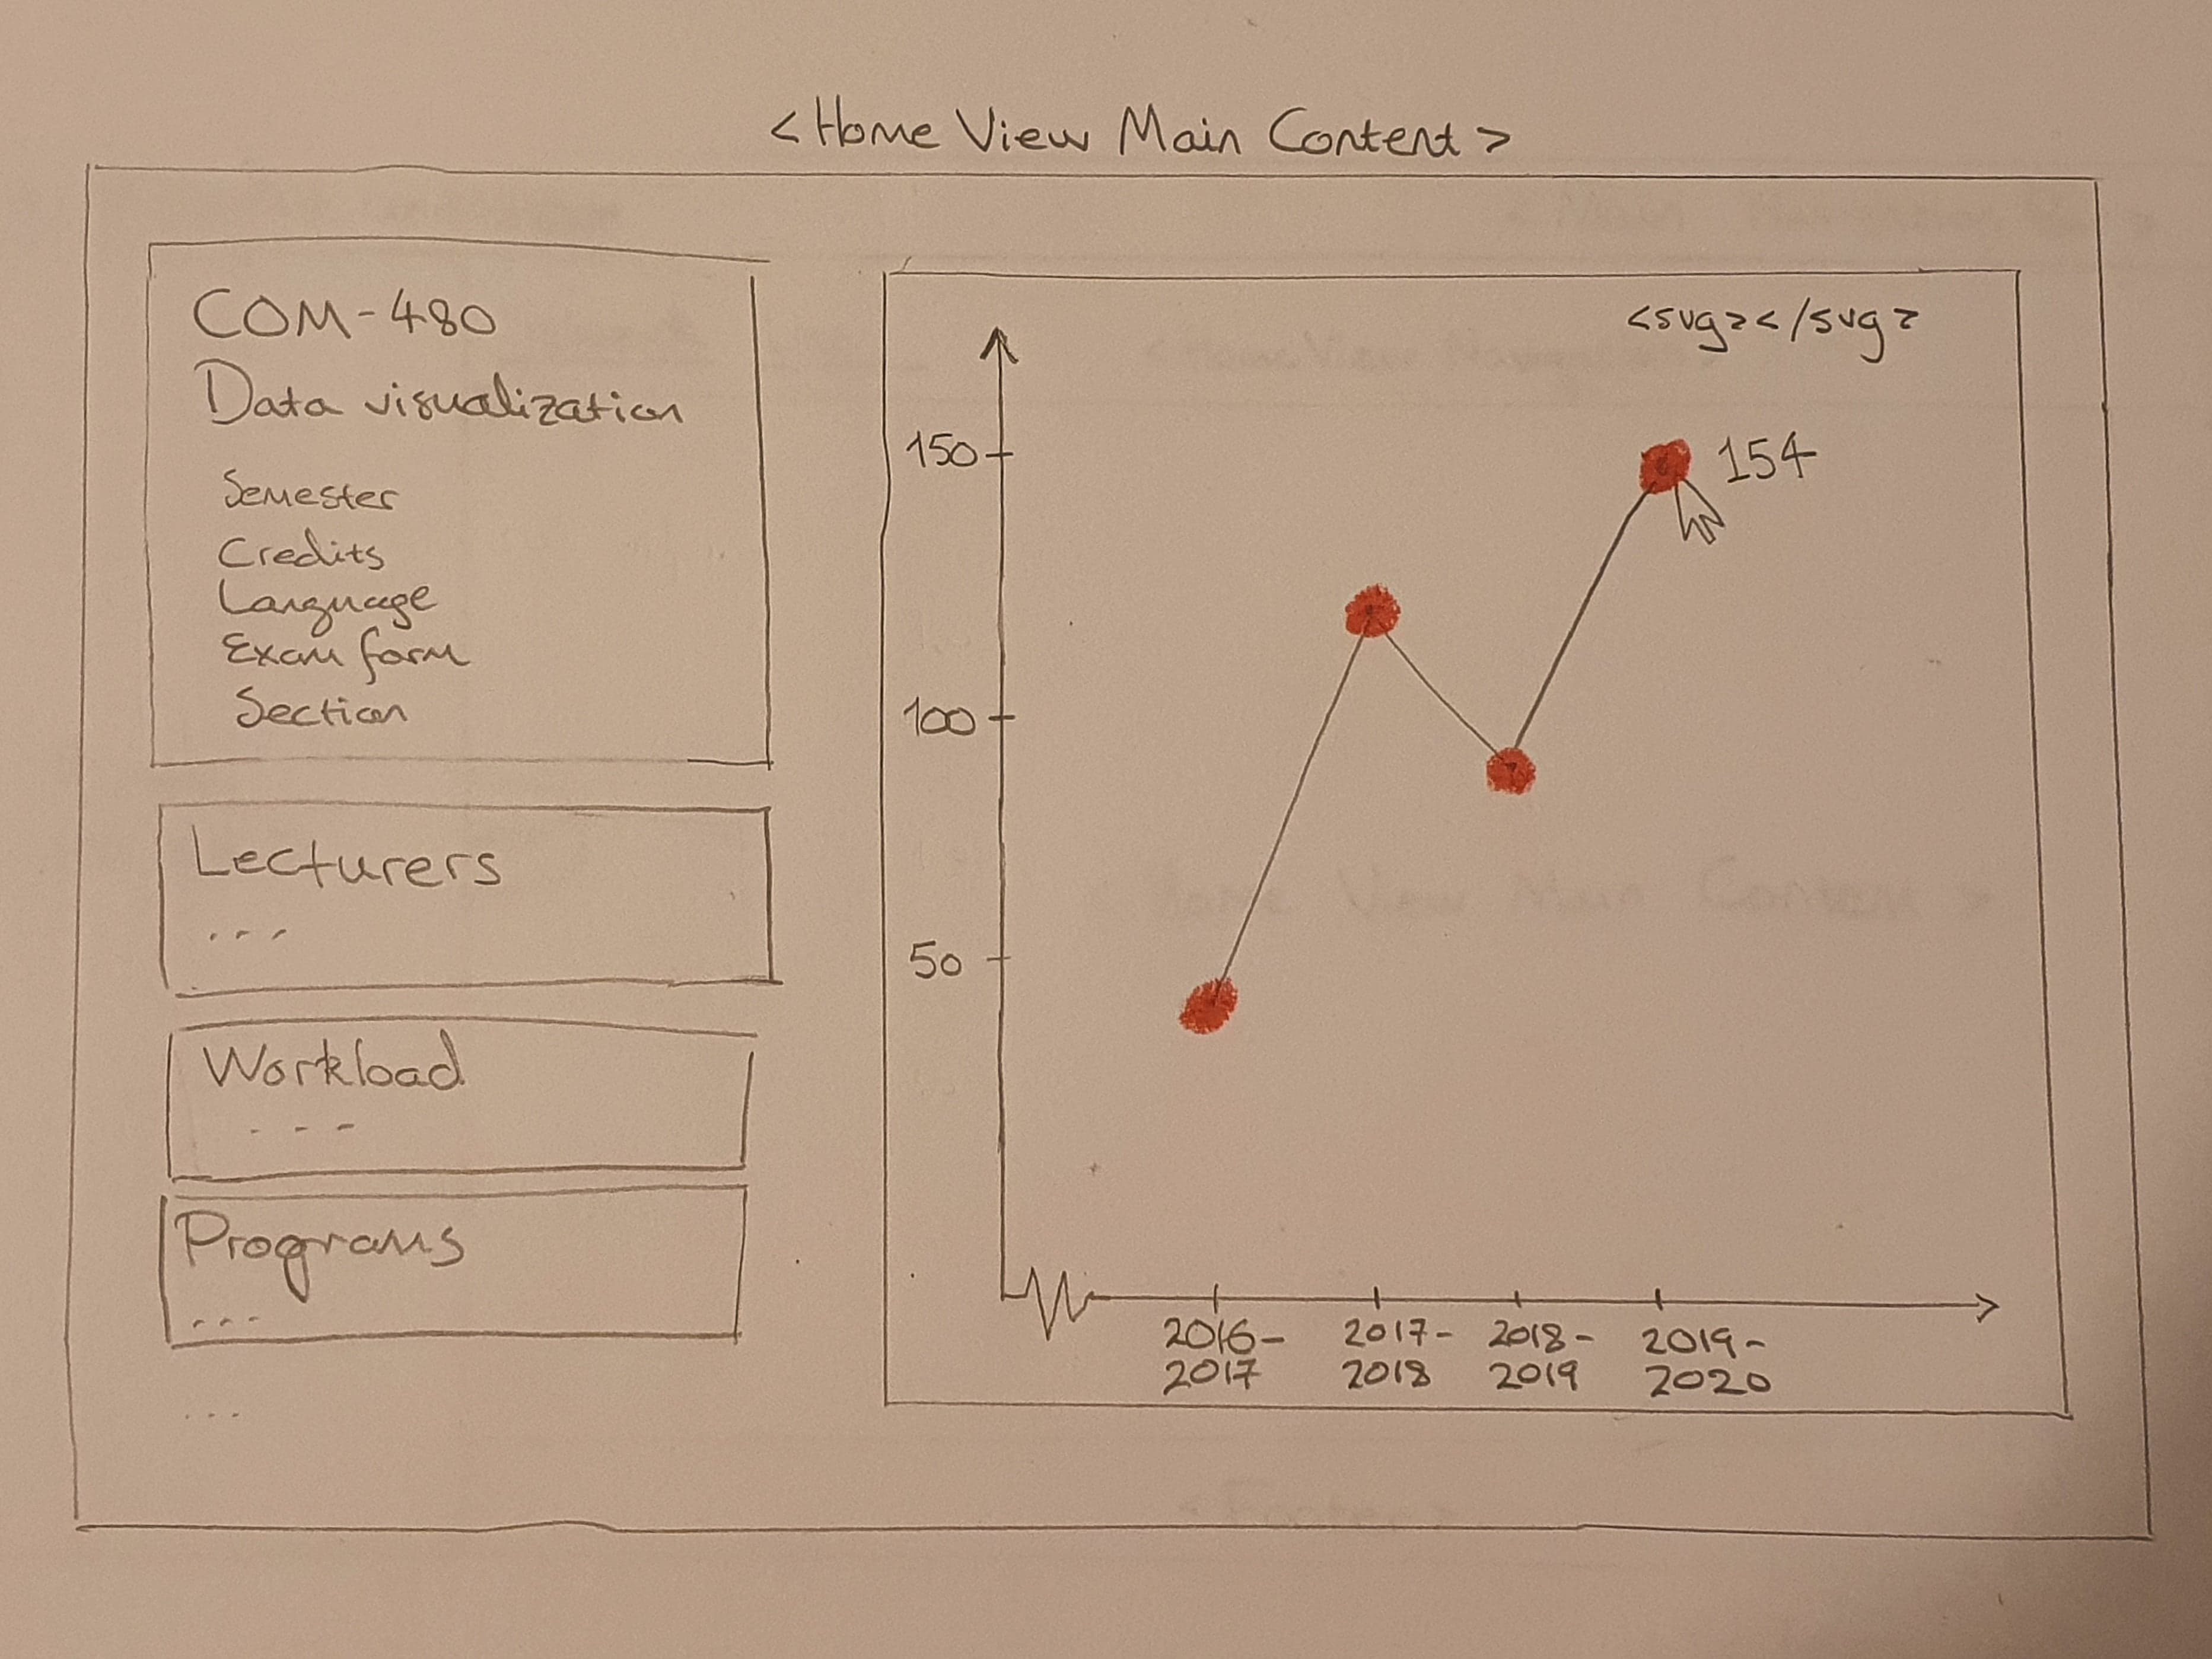 <Home View Main Content>
COM-480
Data visualization
Semester
Credits
Language
Exam form
Section
Lecturers
...
Workload
---
Programs
...
...
<svg></svg>
154
150
100
50
2016-
2017
2017-
2018
2018-
2019
2019-
2020
<Home View Main Content>
<Footer>